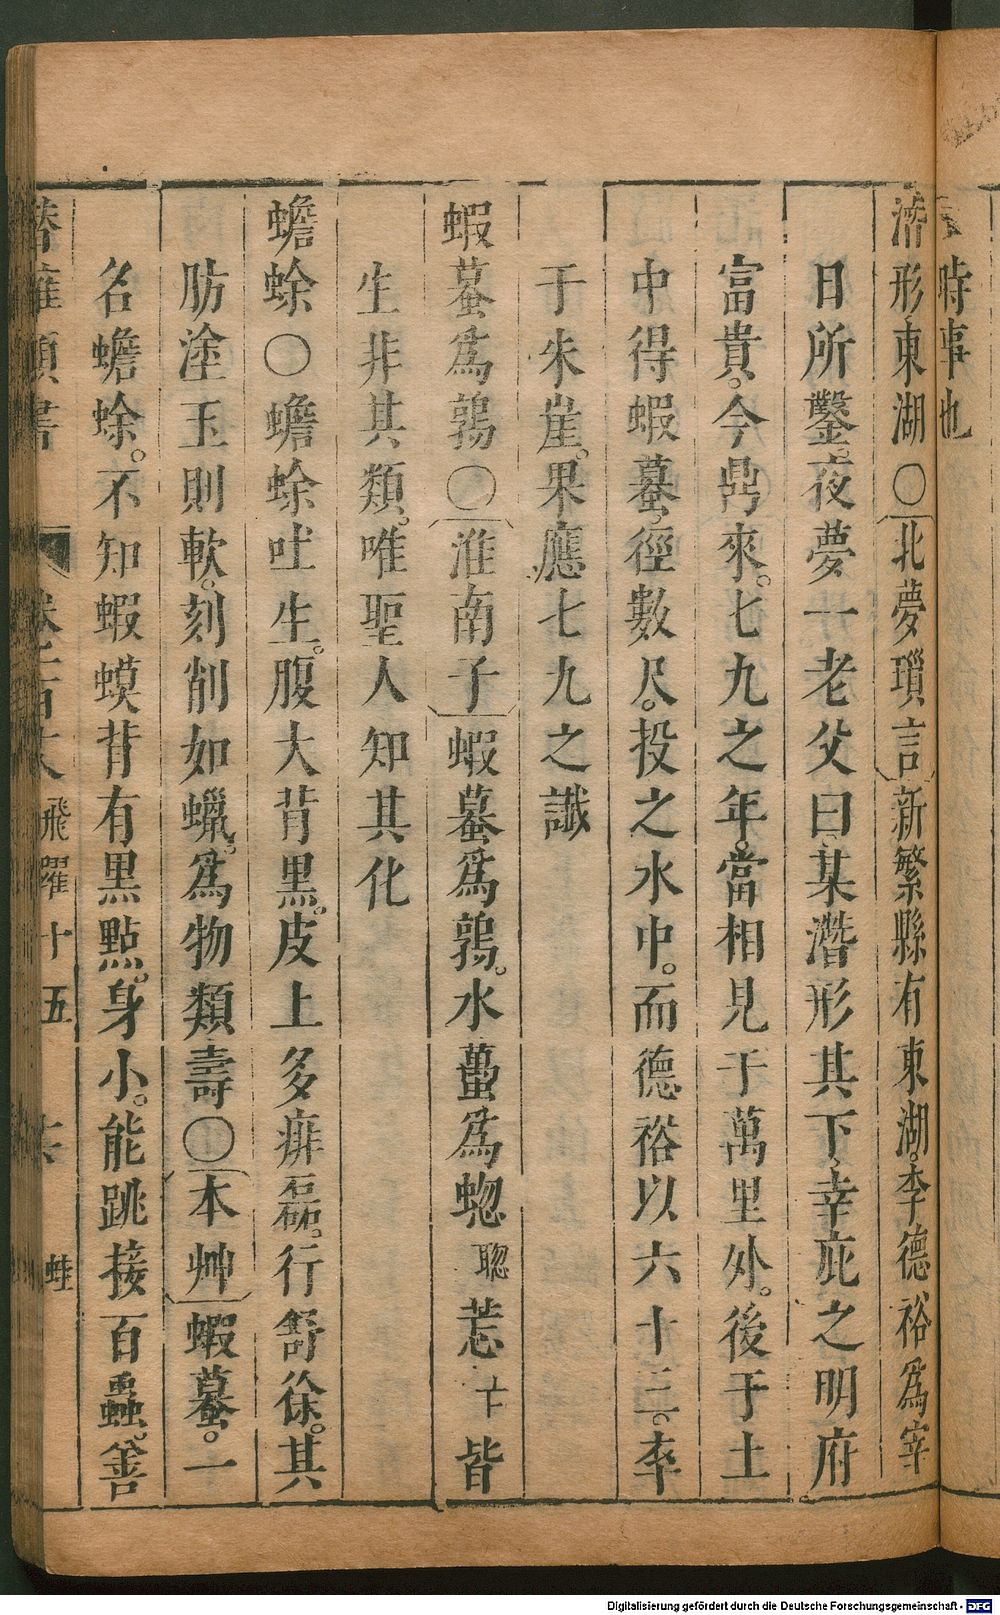 時事也
潛形東湖〇北夢瑣言新繁縣有東湖。李德裕爲宰
日所鑿。夜夢一老父曰、某潛形其下、幸庇之明府
富貴。今鼎來。七九之年。當相見于萬里外。後于土
中得蝦蟇。徑數尺。投之水中。而德裕以六十三。卒
于朱崖。果應七九之讖
蝦蟇爲鶉〇淮南子蝦蟇爲鶉。水蠆爲蟌聰𦮾皆
生非其類。唯聖人知其化
蟾蜍〇蟾蜍吐生。腹大背黑。皮上多痱磊。行舒徐。其
肪塗玉則軟。刻削如蠟。爲物類壽〇本艸蝦蟇。一
名蟾蜍。不知蝦蟆背有黑點。身小。能跳接百蟲。善
類書 飛躍十五 蛙
Digitalisierung gefördert durch die Deutsche Forschungsgemeinschaft - DFG